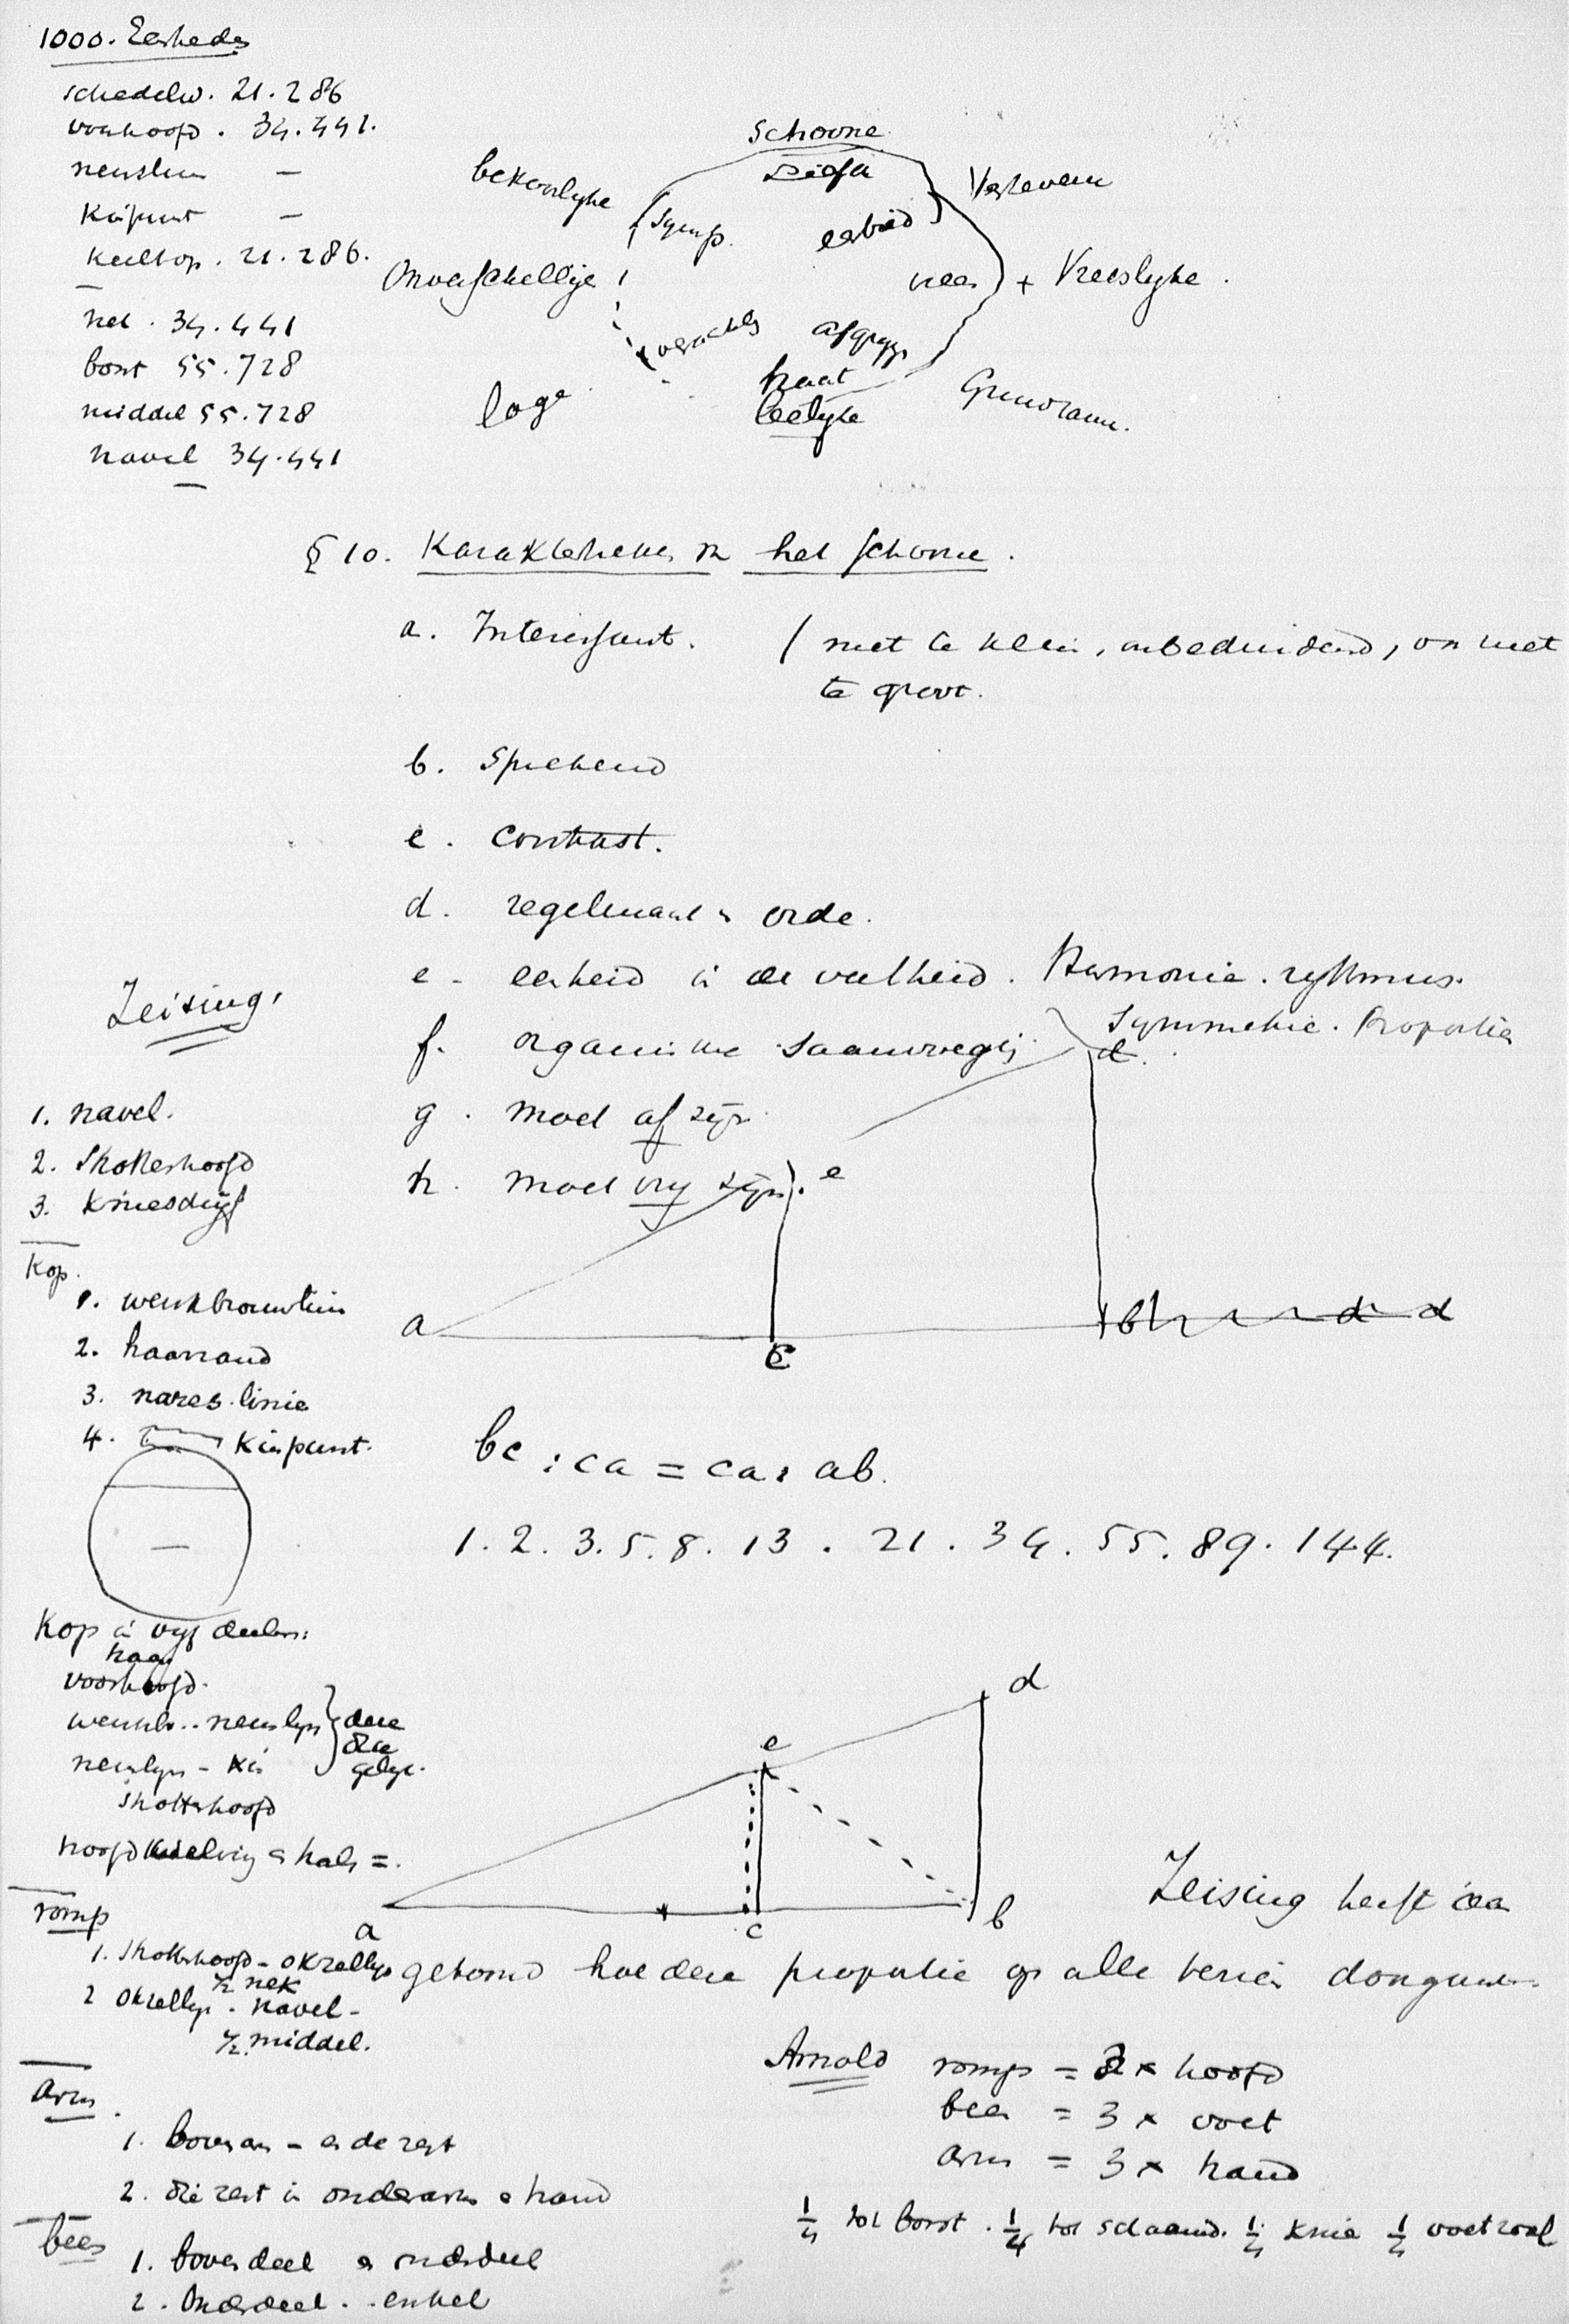 1000. Eenheden
schedelw. 21.286
voorhoofd. 34.441.
neuslin —
Kinpunt —
keeltop. 21.286.
nek. 34.441
borst 55.728
middel 55.728
navel 34.441
Schoone
Liefde
bekoorlyke
Symp.
eerbied
Verhevene
Onverschillige
vrees + Vreeslyke.
verachting
afgryzen
haat
leelyke
lage
§ 10. Karaktertrekken v. het schoone.
a. Interessant. / niet te klein, onbeduidend, en niet
te groot.
b. Sprekend
c. contrast.
d. regelmaat & orde.
e. eenheid in de veelheid. Harmonie. rythmus.
Symmetrie. Proportie
f. organische saamvoeging
g. moet af zijn
h. moet vry zijn.
Zeising.
1. navel.
2. Strottenhoofd
3. Kniesdijf
Kop.
1. wenkbrauwlin
2. haarrand
3. nares. linie
4. Kinpunt.
d.
e
a
c
b d d
bc : ca = ca : ab.
1. 2. 3. 5. 8. 13. 21. 34. 55. 89. 144.
Kop in vyf deelen:
haar
voorhoofd.
wenkb.. neuslyn
neuslyn - kin
deze
drie
gelyk.
strottenhoofd
hoofd & hals =.
d
e
a
c
b
romp
1. Strottenhoofd - okzellyn
½ nek
2 okzellyn - navel -
½ middel.
Zeising heeft daa
getoond hoe deze proportie op alle
Arm.
1. bovenarm - en de rest
2. die rest in onderarm & hand
been
1. bovendeel & onderdeel
2. Onderdeel.. enkel
Arnold romp = 2 x hoofd
been = 3 x voet
arm = 3 x hand
¼ tot borst. ¼ tot schaamd. ¼ knie ¼ voetzool